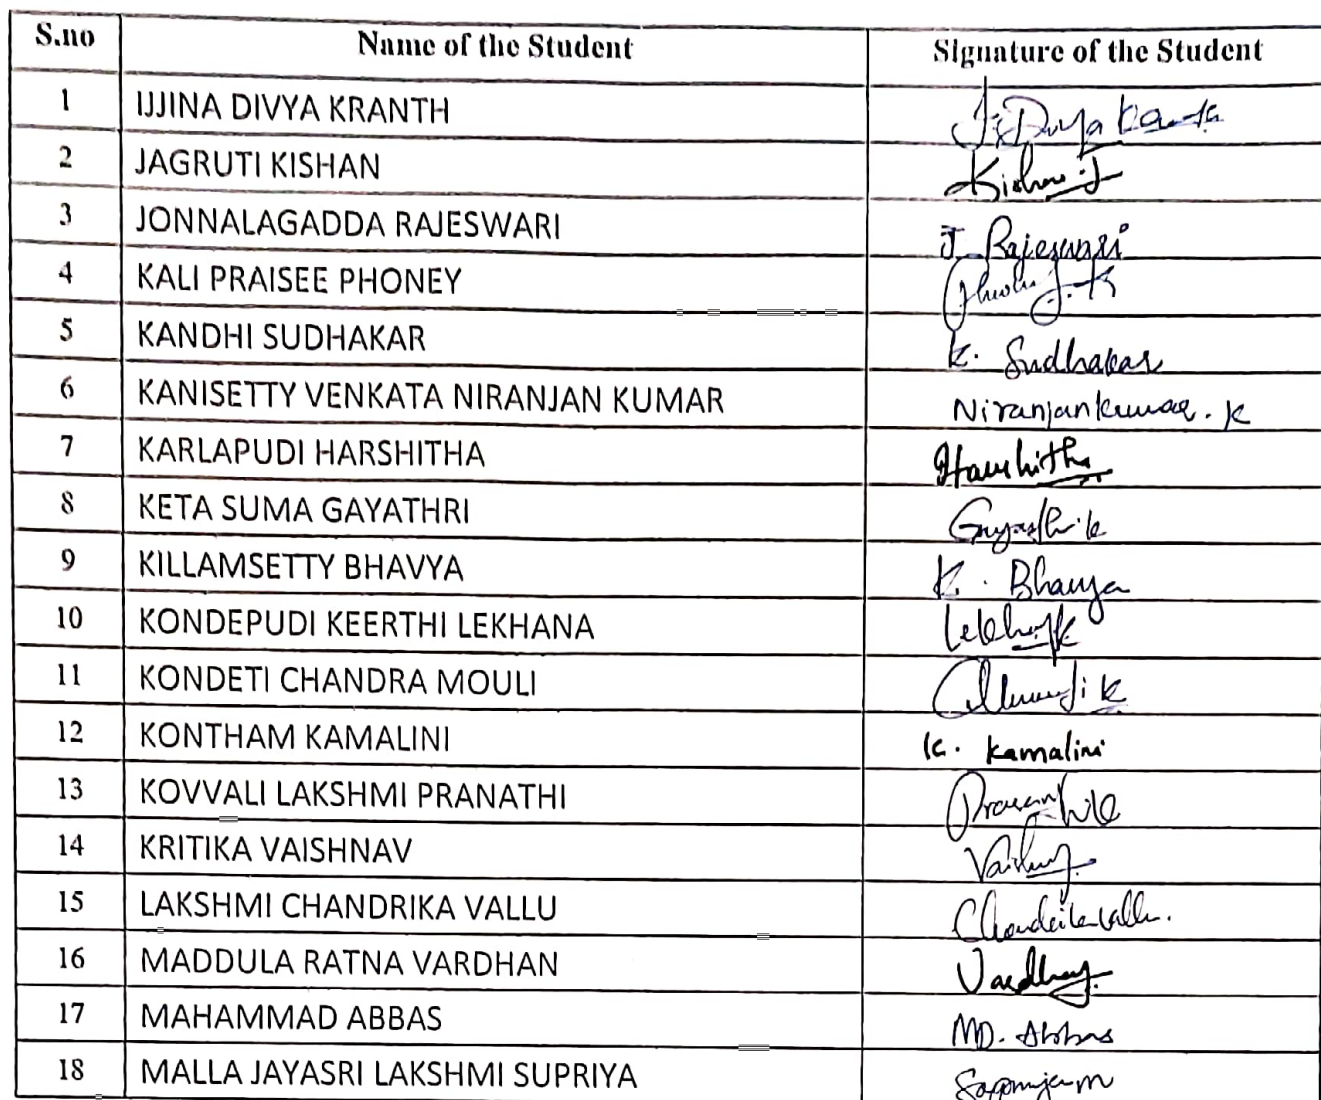 S.no Name of the Student Signature of the Student
1 IJJINA DIVYA KRANTH J. Divya Kranth
2 JAGRUTI KISHAN Kishan J
3 JONNALAGADDA RAJESWARI J. Rajeswari
4 KALI PRAISEE PHONEY
5 KANDHI SUDHAKAR K. Sudhakar
6 KANISETTY VENKATA NIRANJAN KUMAR Niranjankumar. K
7 KARLAPUDI HARSHITHA Harshitha
8 KETA SUMA GAYATHRI Gayathri k
9 KILLAMSETTY BHAVYA K. Bhavya
10 KONDEPUDI KEERTHI LEKHANA
11 KONDETI CHANDRA MOULI
12 KONTHAM KAMALINI K. Kamalini
13 KOVVALI LAKSHMI PRANATHI
14 KRITIKA VAISHNAV
15 LAKSHMI CHANDRIKA VALLU Chandrika vallu.
16 MADDULA RATNA VARDHAN Vardhan
17 MAHAMMAD ABBAS MD. Abbas
18 MALLA JAYASRI LAKSHMI SUPRIYA